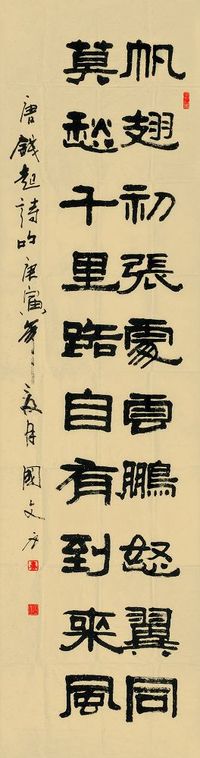 帆翅初張處雲鵬怒翼同
莫愁千里路自有到來風
唐錢起詩句庚寅年夏月國文